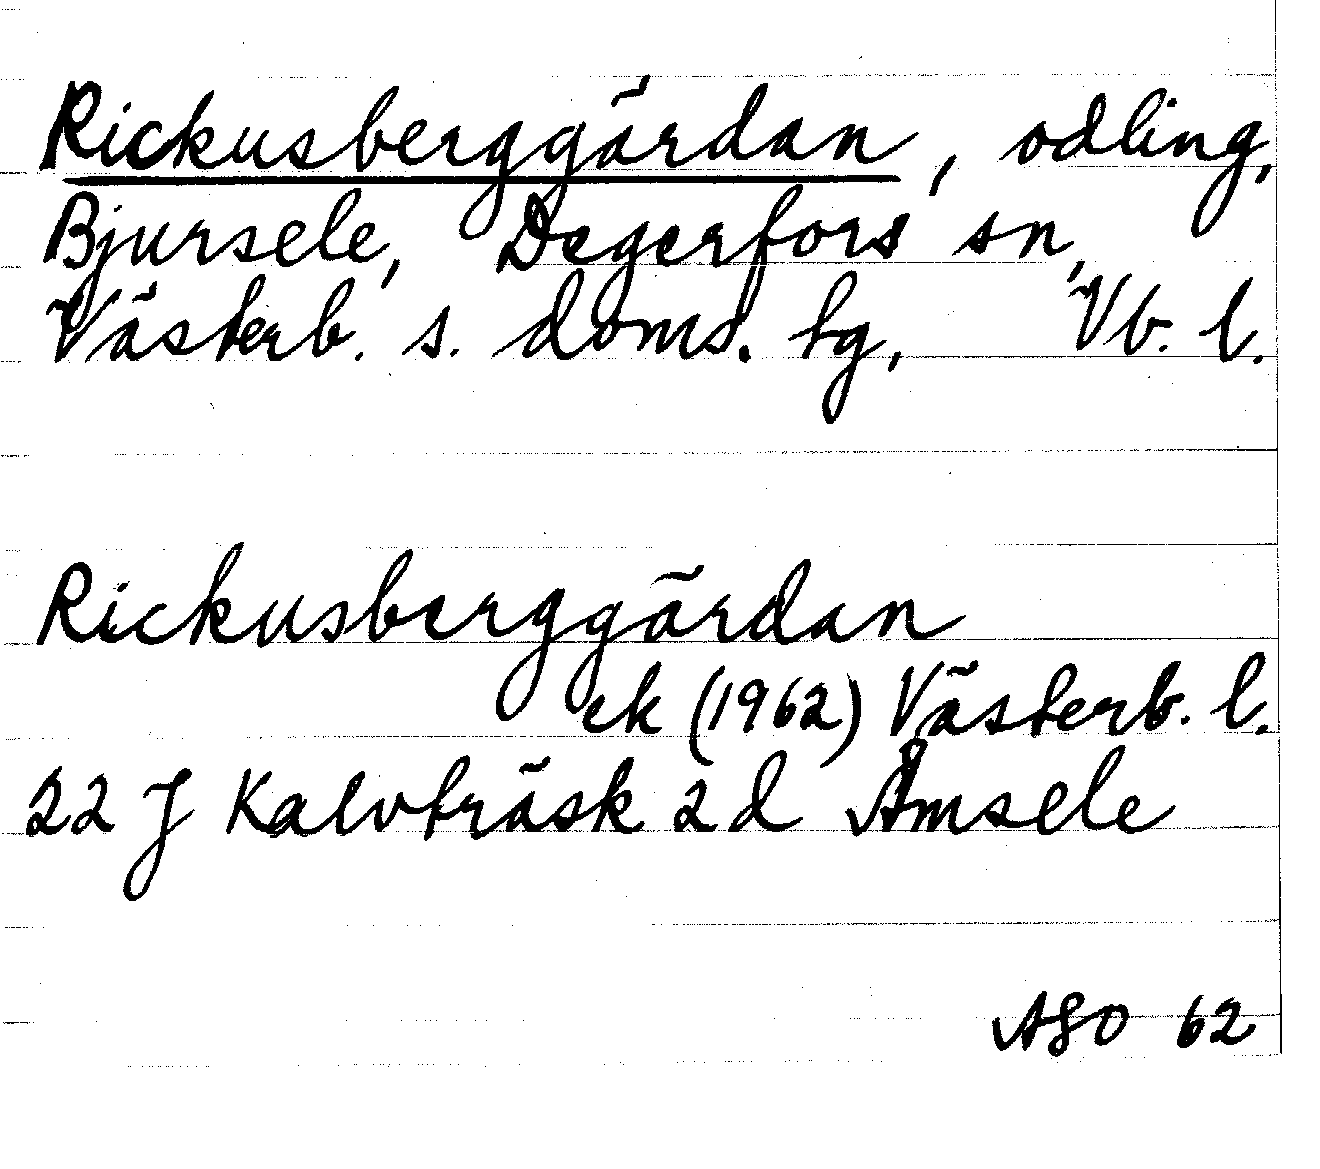 Rickusberggärdan, odling,
Bjursele, Degerfors sn,
Västerb. s. doms. tg, Vb. l.
Rickusberggärdan
ek (1962) Västerb. l.
22 J Kalvträsk 2d Åmsele
ASO 62